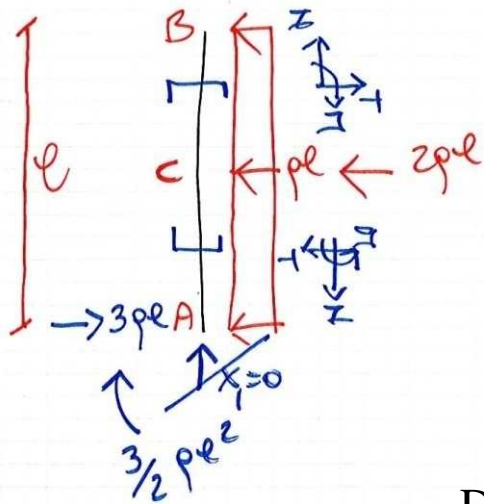 B
N
T
M
l
C
pl
2pl
T
M
N
3pl
A
X₁=0
3/2 pl²
D